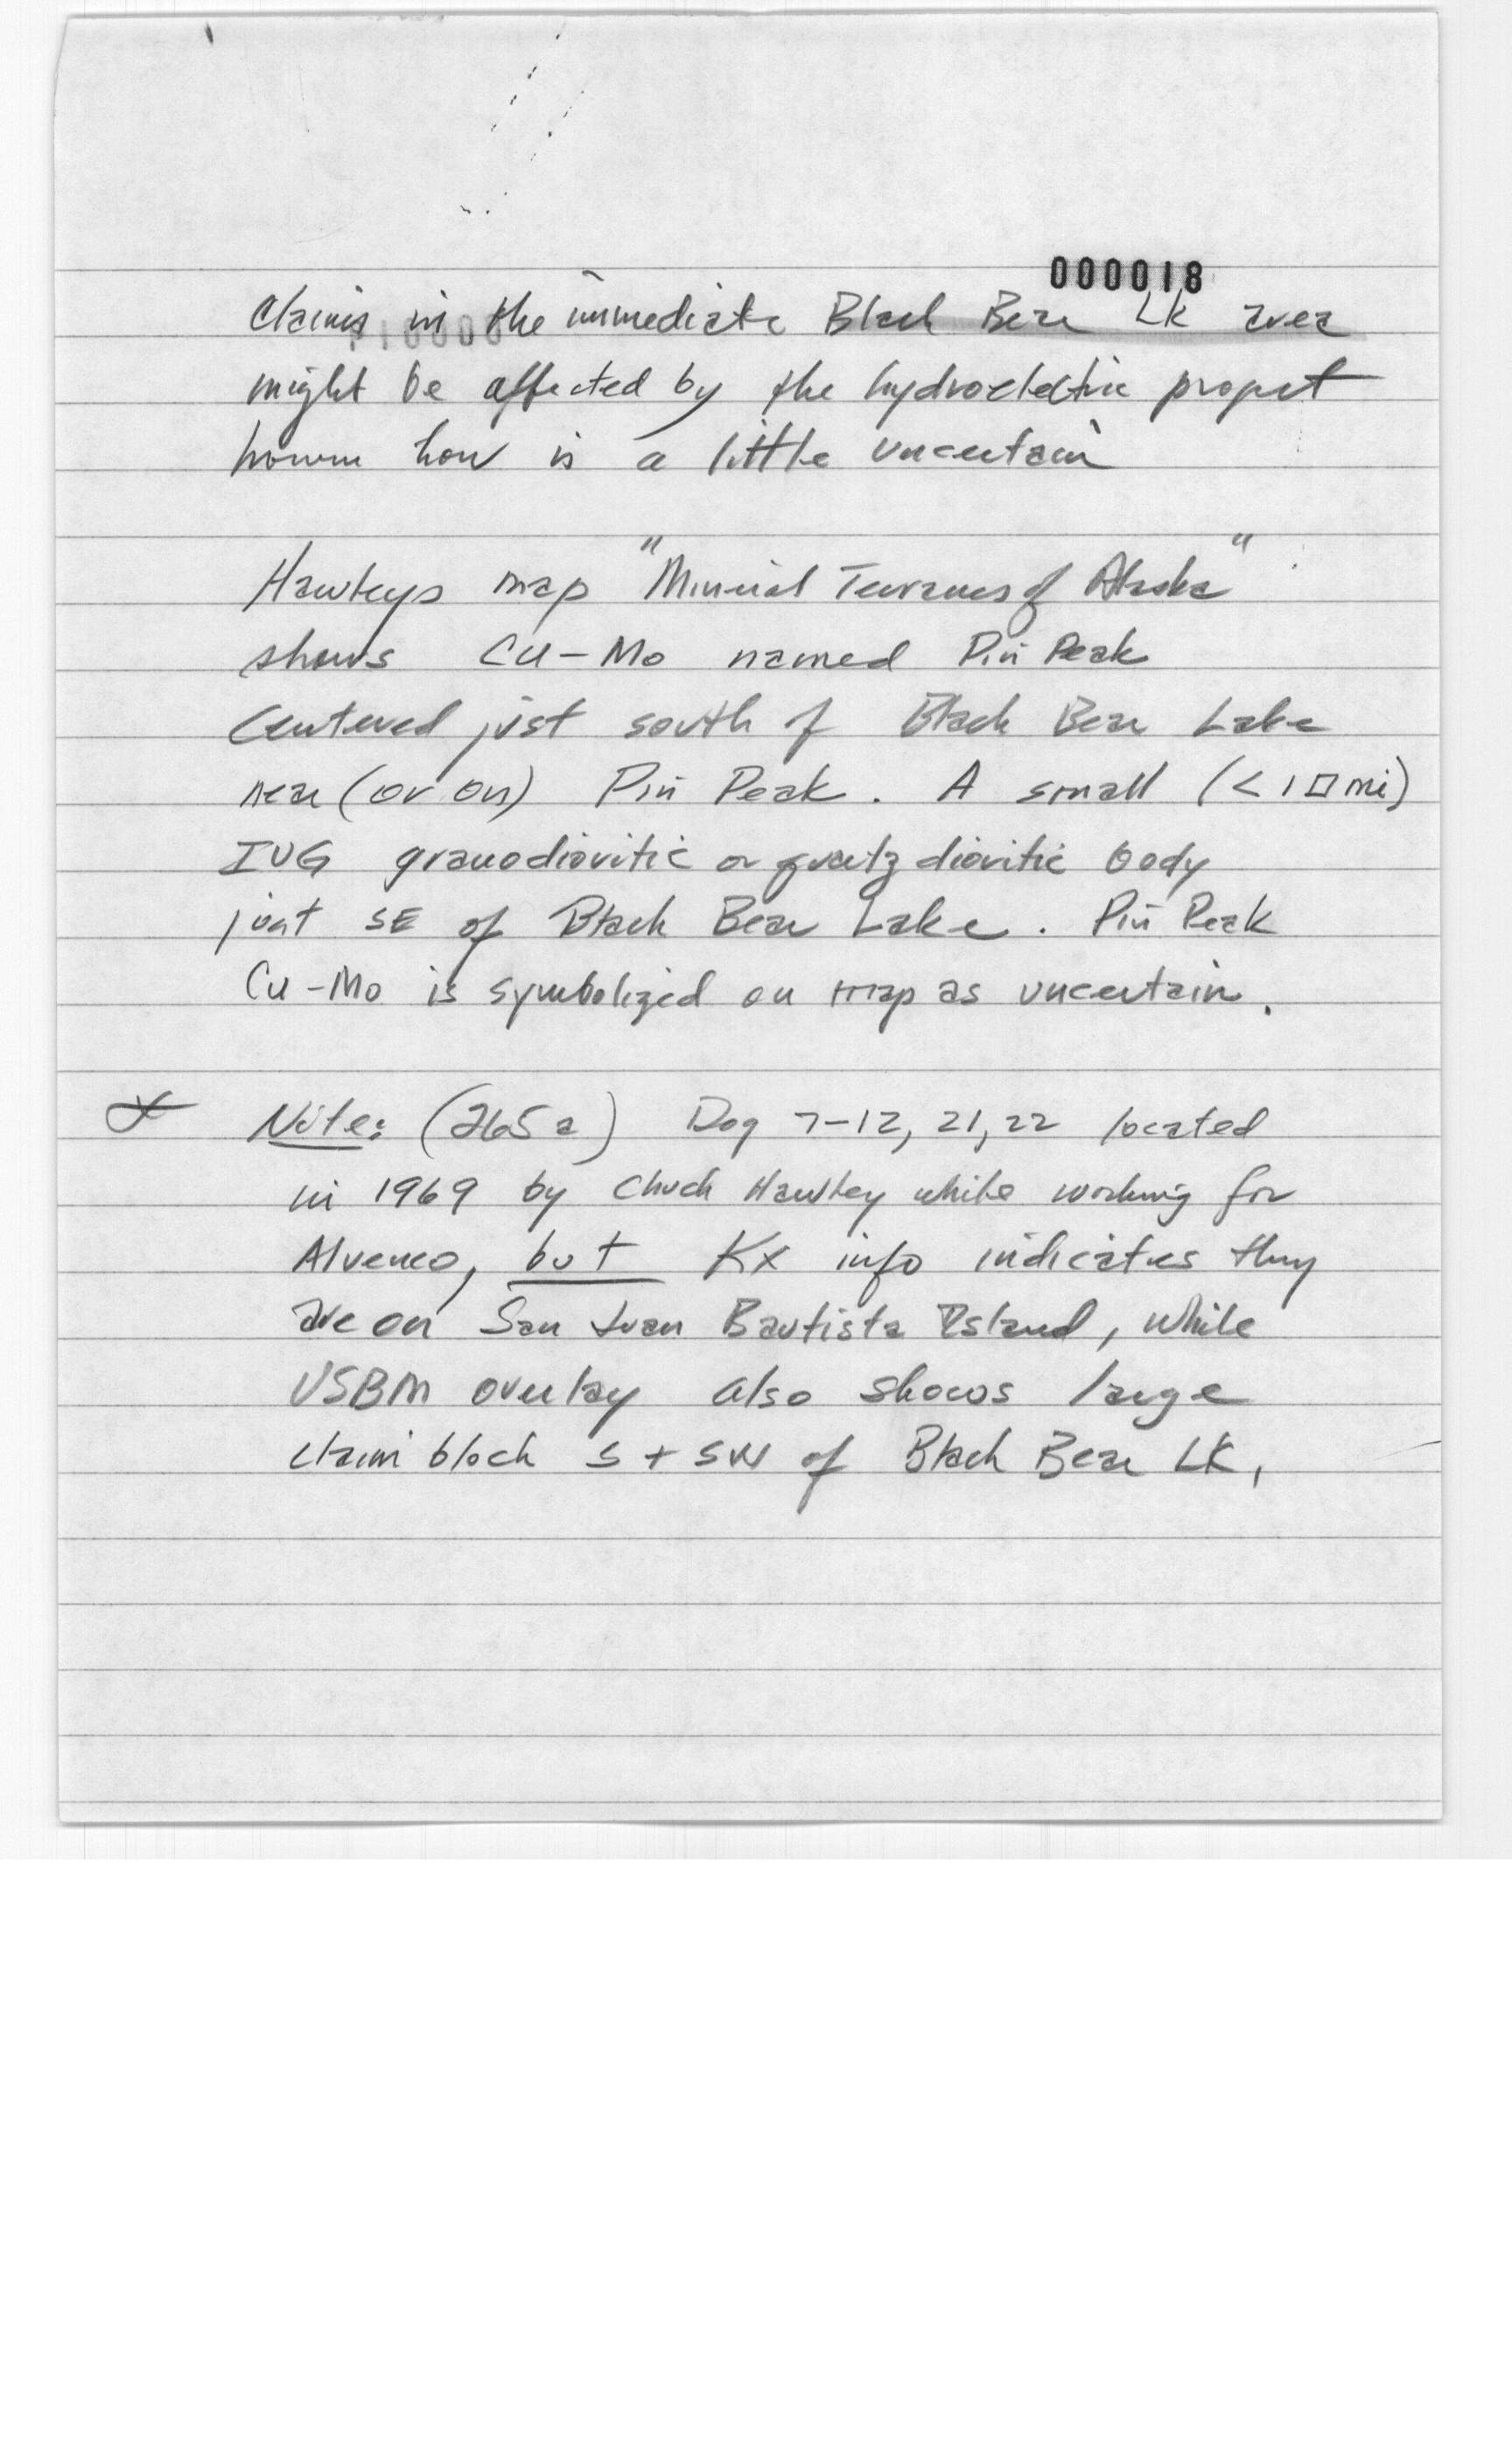 000018
Claims in the immediate Black Bear Lk area
might be affected by the hydroelectric project
how is a little uncertain
Hawleys map "Mineral Terranes of Alaska"
shows Cu-Mo named Pin Peak
Centered just south of Black Bear Lake
near (or on) Pin Peak. A small (< 1 □ mi)
granodioritic or quartz dioritic body
just SE of Black Bear Lake. Pin Peak
Cu-Mo is symbolized on map as uncertain.
Note: (265a) Dog 7-12, 21, 22 located
in 1969 by Chuck Hawley while working for
but Kx info indicates they
are on San Juan Bautista Island, while
USBM overlay also shows large
claim block S + SW of Black Bear LK,